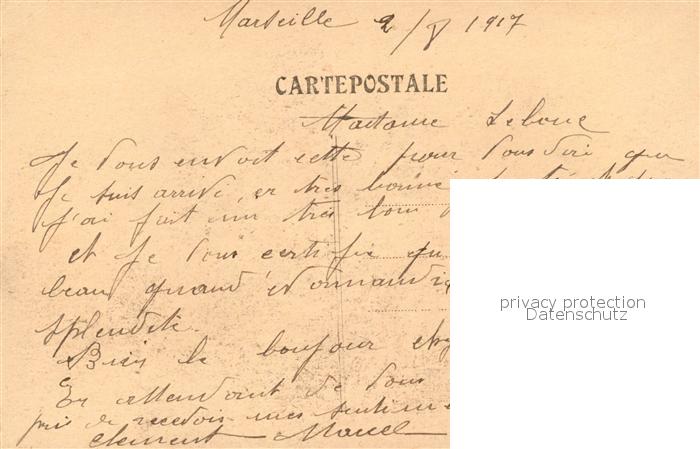 Marseille 2/8 1917
CARTE POSTALE
Madame Lebouc
Je vous envoit cette pour vous dire que
Je suis arrivé, er tres bonne
j'ai fait un très bon
et Je vous certifie qu
beau quand Normandi
splendite.
Bien le bonjour chez
En attendant de vous
pris de recevoir mes sentime
Clement Marcel
privacy protection
Datenschutz